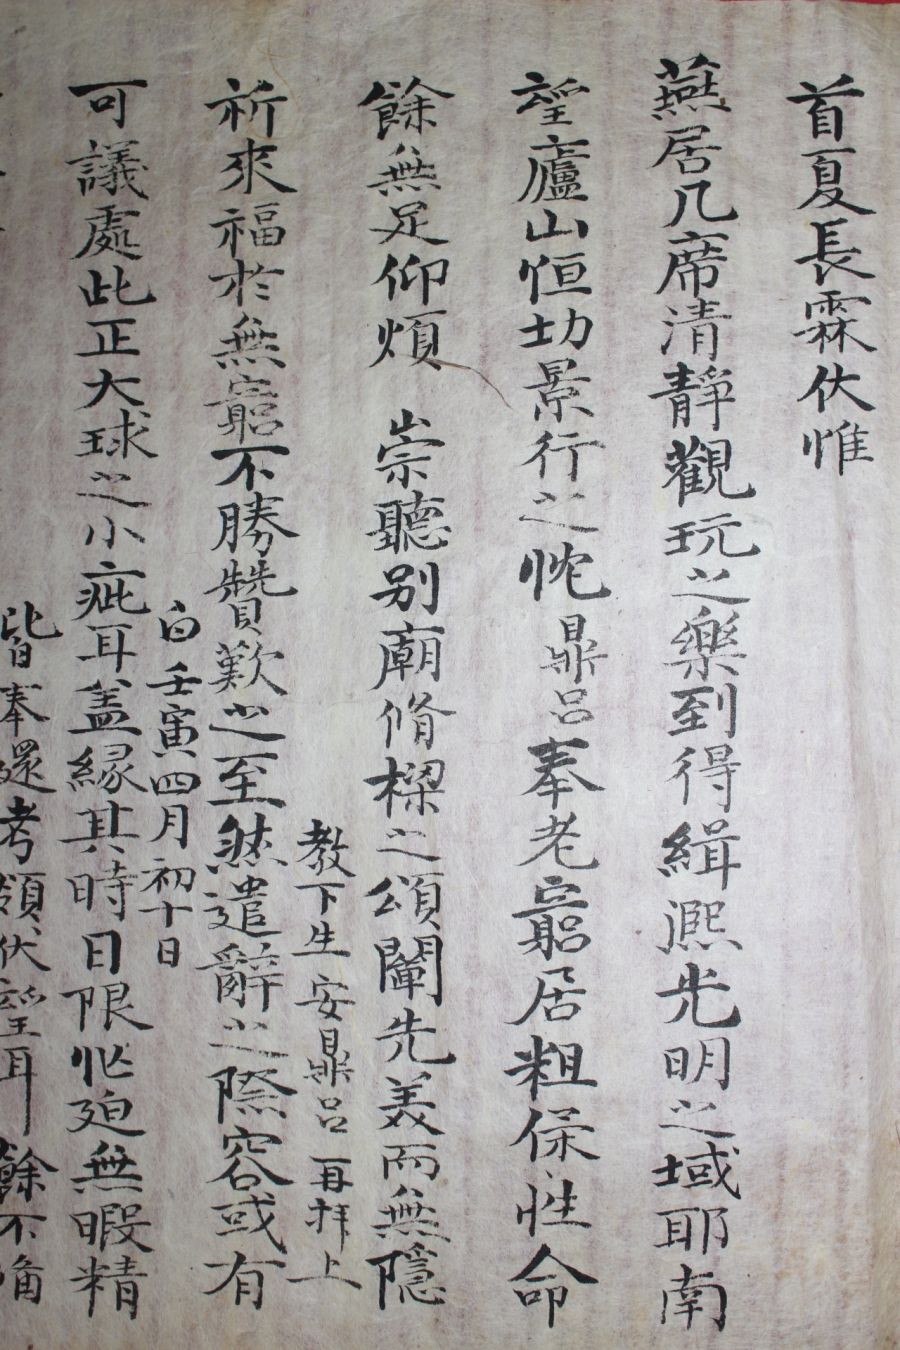 首夏長霖伏惟
燕居几席清靜觀玩之樂到得緝凞光明之域耶南
望廬山恒切景行之忱鼎呂奉老窮居粗保性命
餘無足仰煩 崇聽別廟脩樑之頌闡先義而無隱
教下生安鼎呂再拜上
祈來福於無窮不勝贊歎之至然遣辭之際容或有
白壬寅四月初十日
可議處此正大球之小疵耳盖緣其時日限忙廹無暇精
皆奉還考領伏望耳餘不備